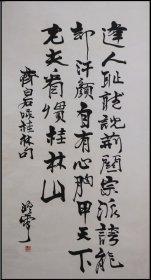 逢人耻聽説荆關宗派誇能
却汗顔自有心胸甲天下
老夫看慣桂林山
齊白石咏桂林句